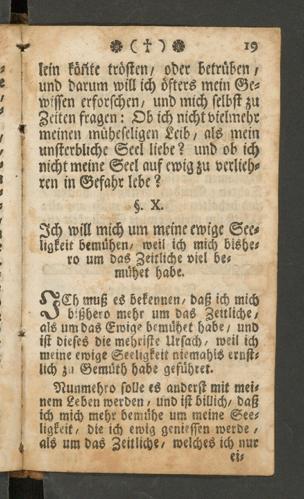 ❁ ( † ) ❁ 19
lein köñte trösten / oder betrüben /
und darum will ich öfters mein Ge-
wissen erforschen / und mich selbst zu
Zeiten fragen : Ob ich nicht vielmehr
meinen müheseligen Leib / als mein
unsterbliche Seel liebe ? und ob ich
nicht meine Seel auf ewig zu verlieh-
ren in Gefahr lebe ?
§. X.
Ich will mich um meine ewige See-
ligkeit bemühen / weil ich mich bishe-
ro um das Zeitliche viel be-
mühet habe.
ICh muß es bekennen / daß ich mich
bißhero mehr um das Zeitliche /
als um das Ewige bemühet habe / und
ist dieses die mehriste Ursach / weil ich
meine ewige Seeligkeit niemahls ernst-
lich zu Gemüth habe geführet.
Nunmehro solle es anderst mit mei-
nem Leben werden / und ist billich / daß
ich mich mehr bemühe um meine See-
ligkeit / die ich ewig geniessen werde /
als um das Zeitliche / welches ich nur
ei-